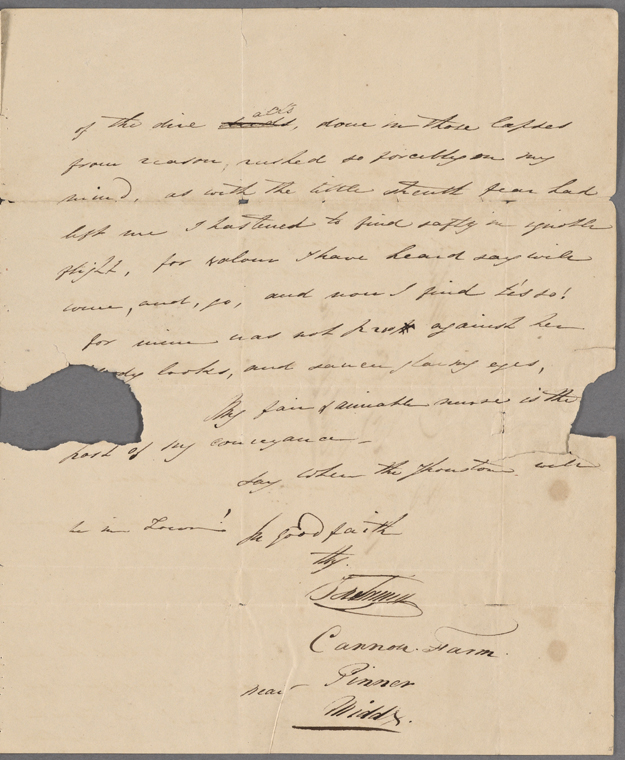 of the dire acts, done in those lapses
from reason, rushed so forcibly on my
mind, as with the little strenth fear had
left me I hastened to find safty in ignoble
flight, for valour I have heard say will
come, and, go, and now I find t'is so!
for mine was not proof against her
looks, and saucer glaring eyes,
My fair & amiable nurse is the
post of my conveyance —
Say when the will
be in Town!
In good faith
thy
Cannon Farm.
near Pinner
Middx.